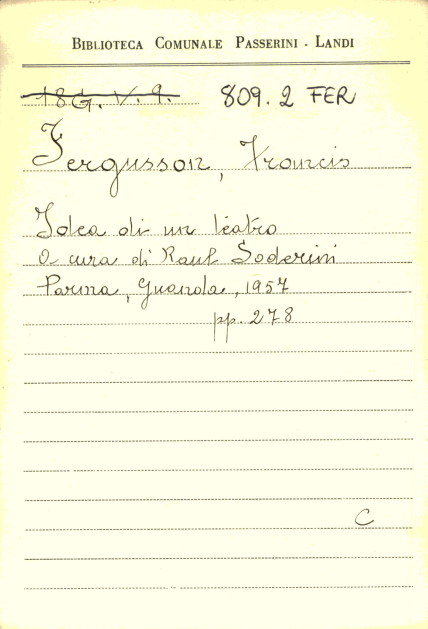 BIBLIOTECA COMUNALE PASSERINI - LANDI
18G. V. 9. 809.2 FER
Fergusson, Francis
Idea di un teatro
A cura di Raul Soderini
Parma, Guanda, 1957
pp. 278
C